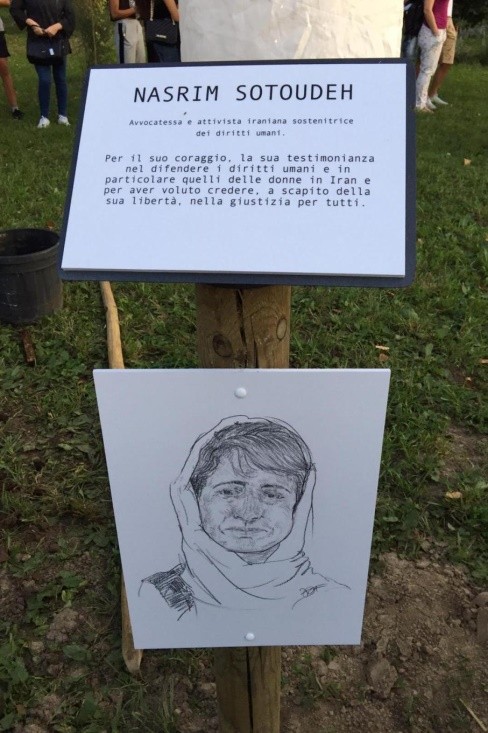 NASRIM SOTOUDEH
Avvocatessa e attivista iraniana sostenitrice
dei diritti umani.
Per il suo coraggio, la sua testimonianza
nel difendere i diritti umani e in
particolare quelli delle donne in Iran e
per aver voluto credere, a scapito della
sua libertà, nella giustizia per tutti.